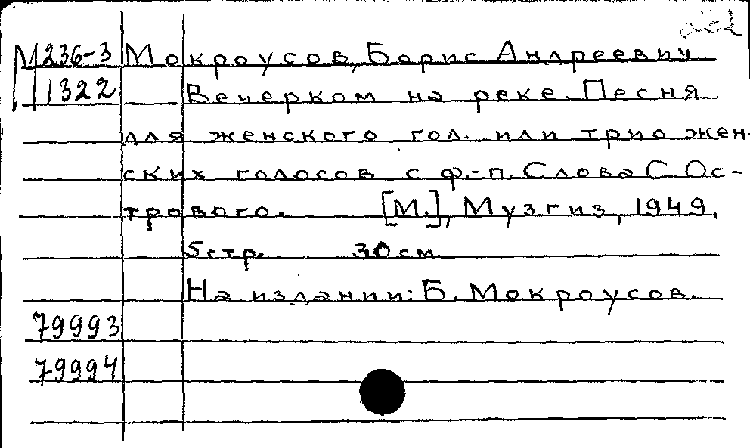 М236-3 Мокроусов, Борис Андреевич
1322 Вечерком на реке. Песня
для женского гол. или трио жен-
ских голосов с ф.-п. Слова С. Ос-
трового. [М.], Музгиз, 1949.
5 стр. 30 см
На издании: Б. Мокроусов.
79993
79994